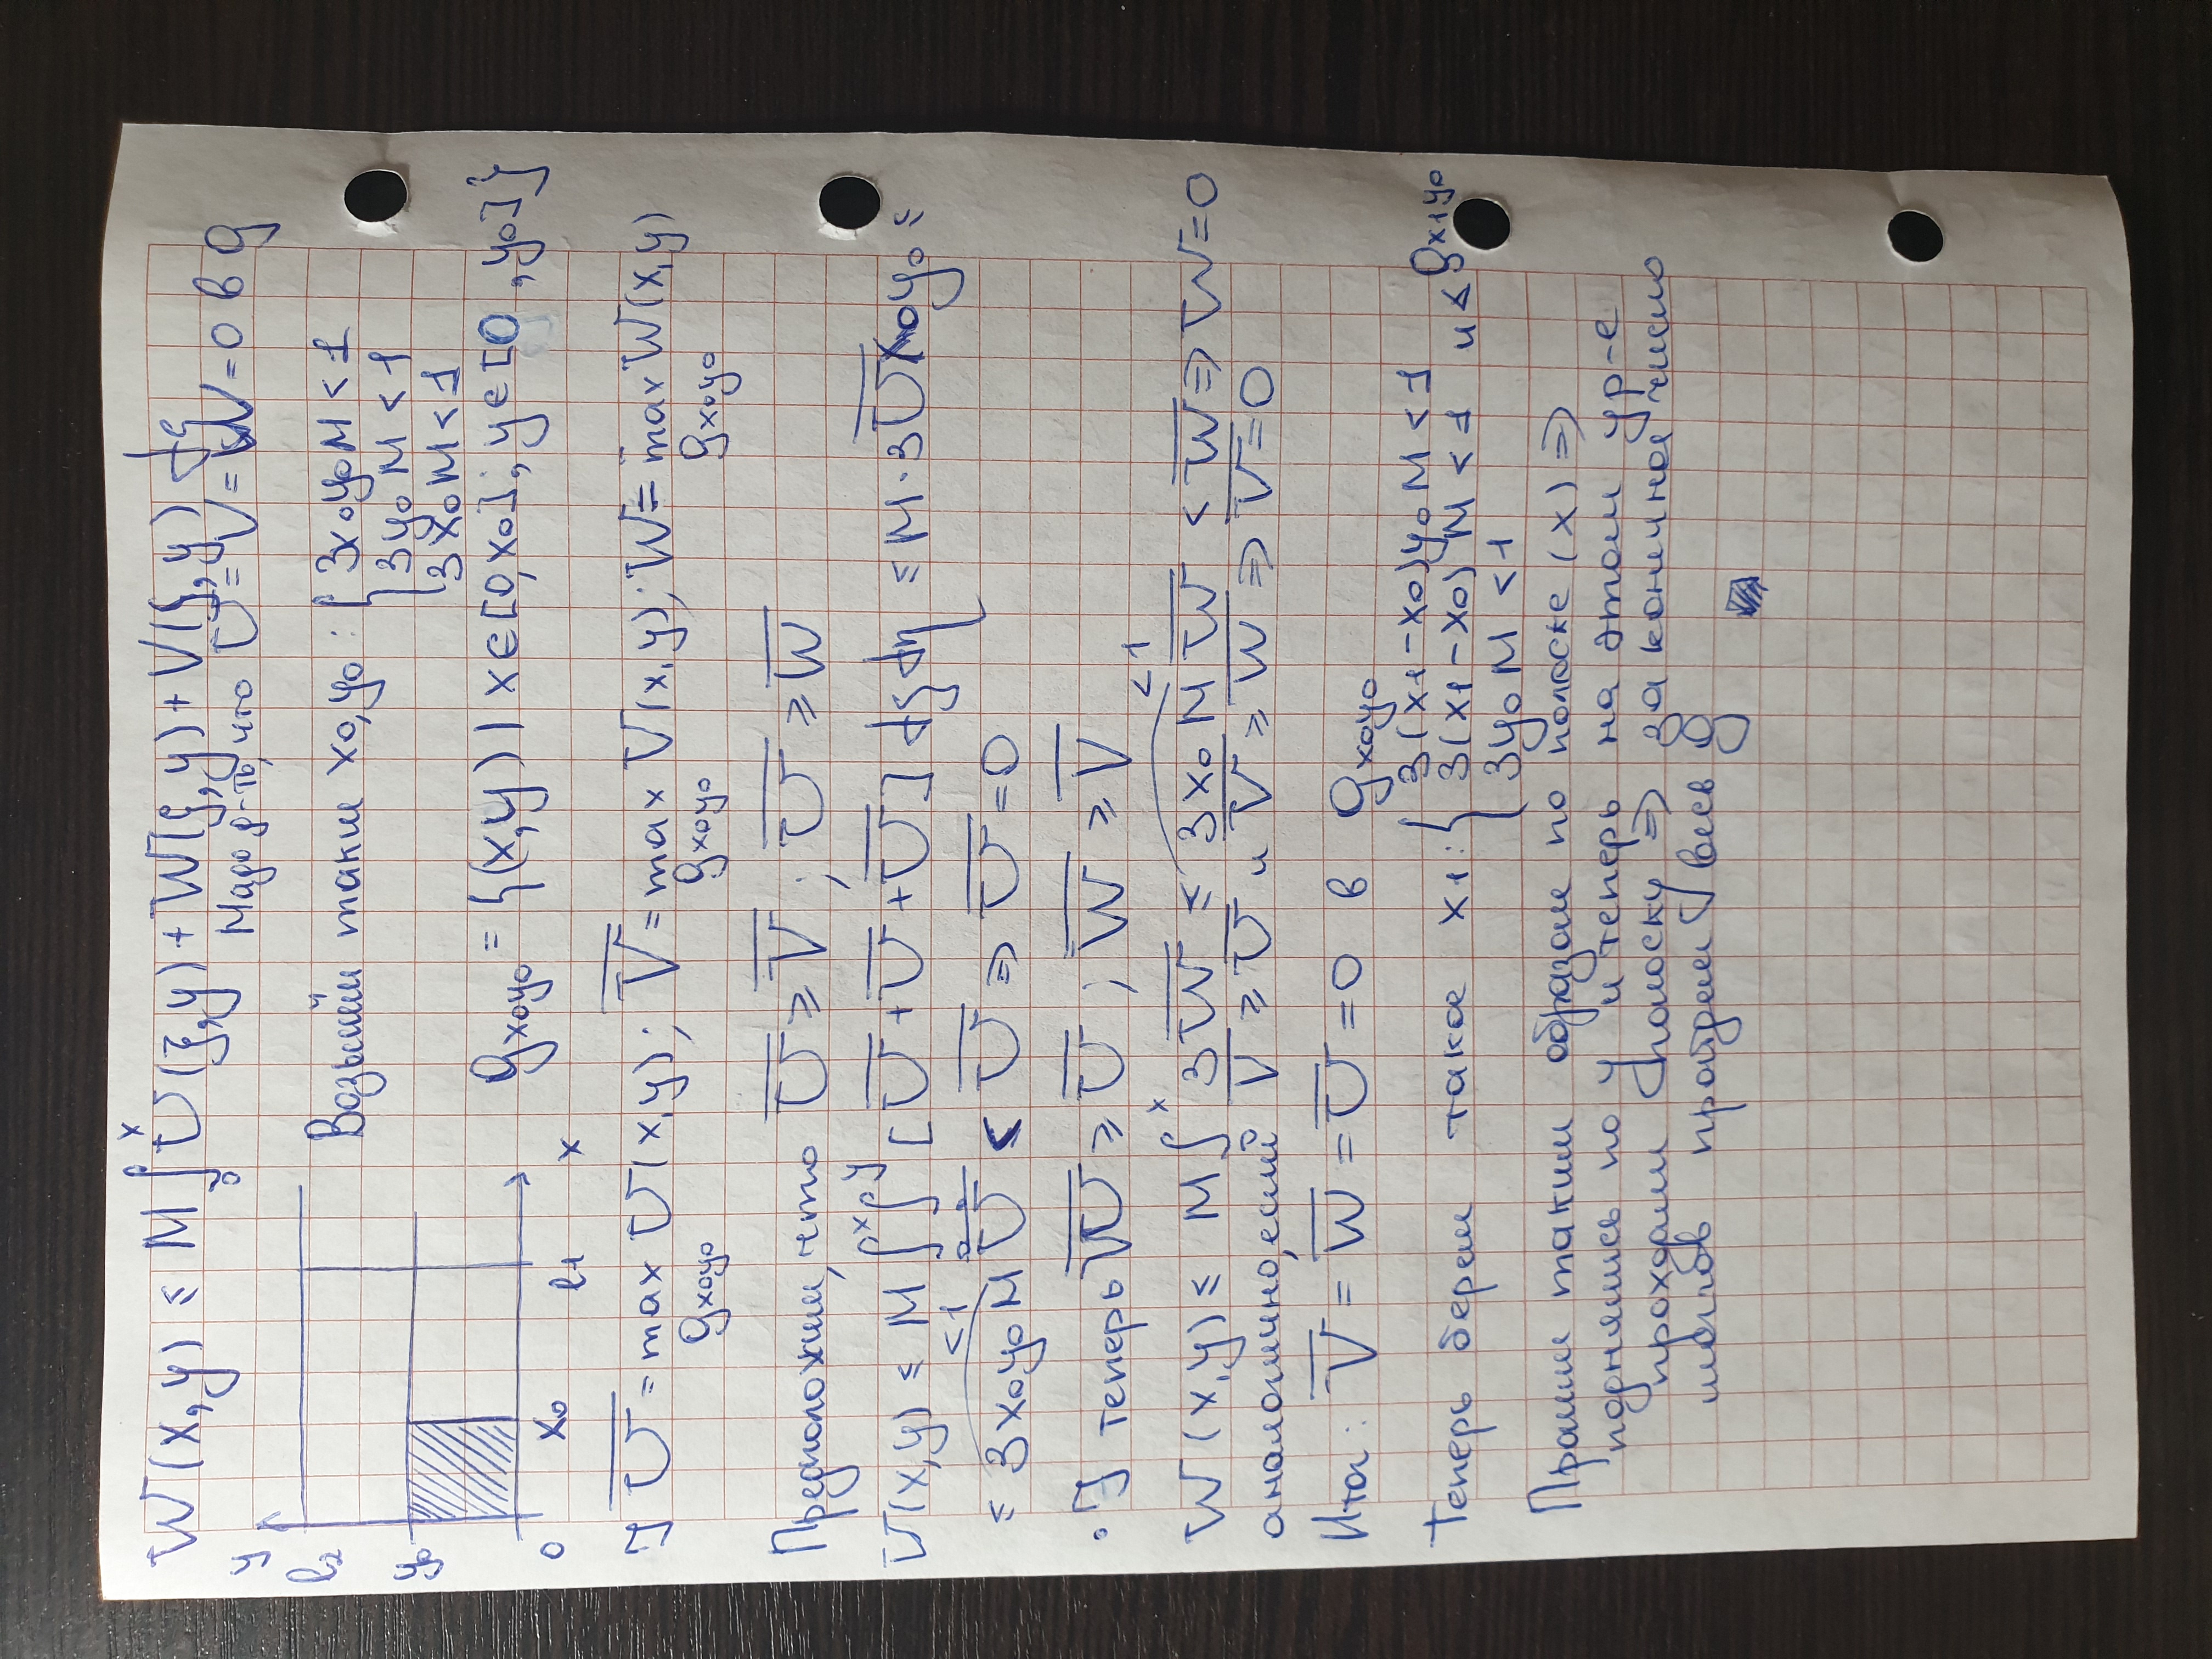 W(x,y) ≤ M ∫₀ˣ U(ξ,y) + W(ξ,y) + V(ξ,y) dξ
Надо д-ть, что U = V = W = 0 в g
y
l₂
y₀
0
x₀
l₁
x
Возьмём такие x₀,y₀: { 3x₀y₀M < 1
3y₀M < 1
3x₀M < 1
g x₀y₀ = {(x,y) | x∈[0,x₀]; y∈[0,y₀]}
] U̅ = max U(x,y); V̅ = max V(x,y); W̅ = max W(x,y)
g x₀y₀ g x₀y₀ g x₀y₀
Предположим, что U̅ ≥ V̅ ; U̅ ≥ W̅
U(x,y) ≤ M ∫₀ˣ ∫₀ʸ [U̅ + U̅ + U̅] dξ dη ≤ M · 3U̅x₀y₀ =
<1
= 3x₀y₀M U̅ < U̅ ⇒ U̅ = 0
· ] теперь W̅ ≥ U̅ ; W̅ ≥ V̅
<1
W(x,y) ≤ M ∫ˣ 3W̅ ≤ 3x₀M W̅ < W̅ ⇒ W̅ = 0
аналогично, если V̅ ≥ U̅ и V̅ ≥ W̅ ⇒ V̅ = 0
Итог: V̅ = W̅ = U̅ = 0 в g x₀y₀
Теперь берем такое x₁: { 3(x₁-x₀)y₀M < 1
3(x₁-x₀)M < 1 и g x₁y₀
3y₀M < 1
Прошли таким образом по полоске (x) ⇒
поднялись по y и теперь на этом ур-е
проходим полоску ⇒ за конечное число
шагов пройдем весь g